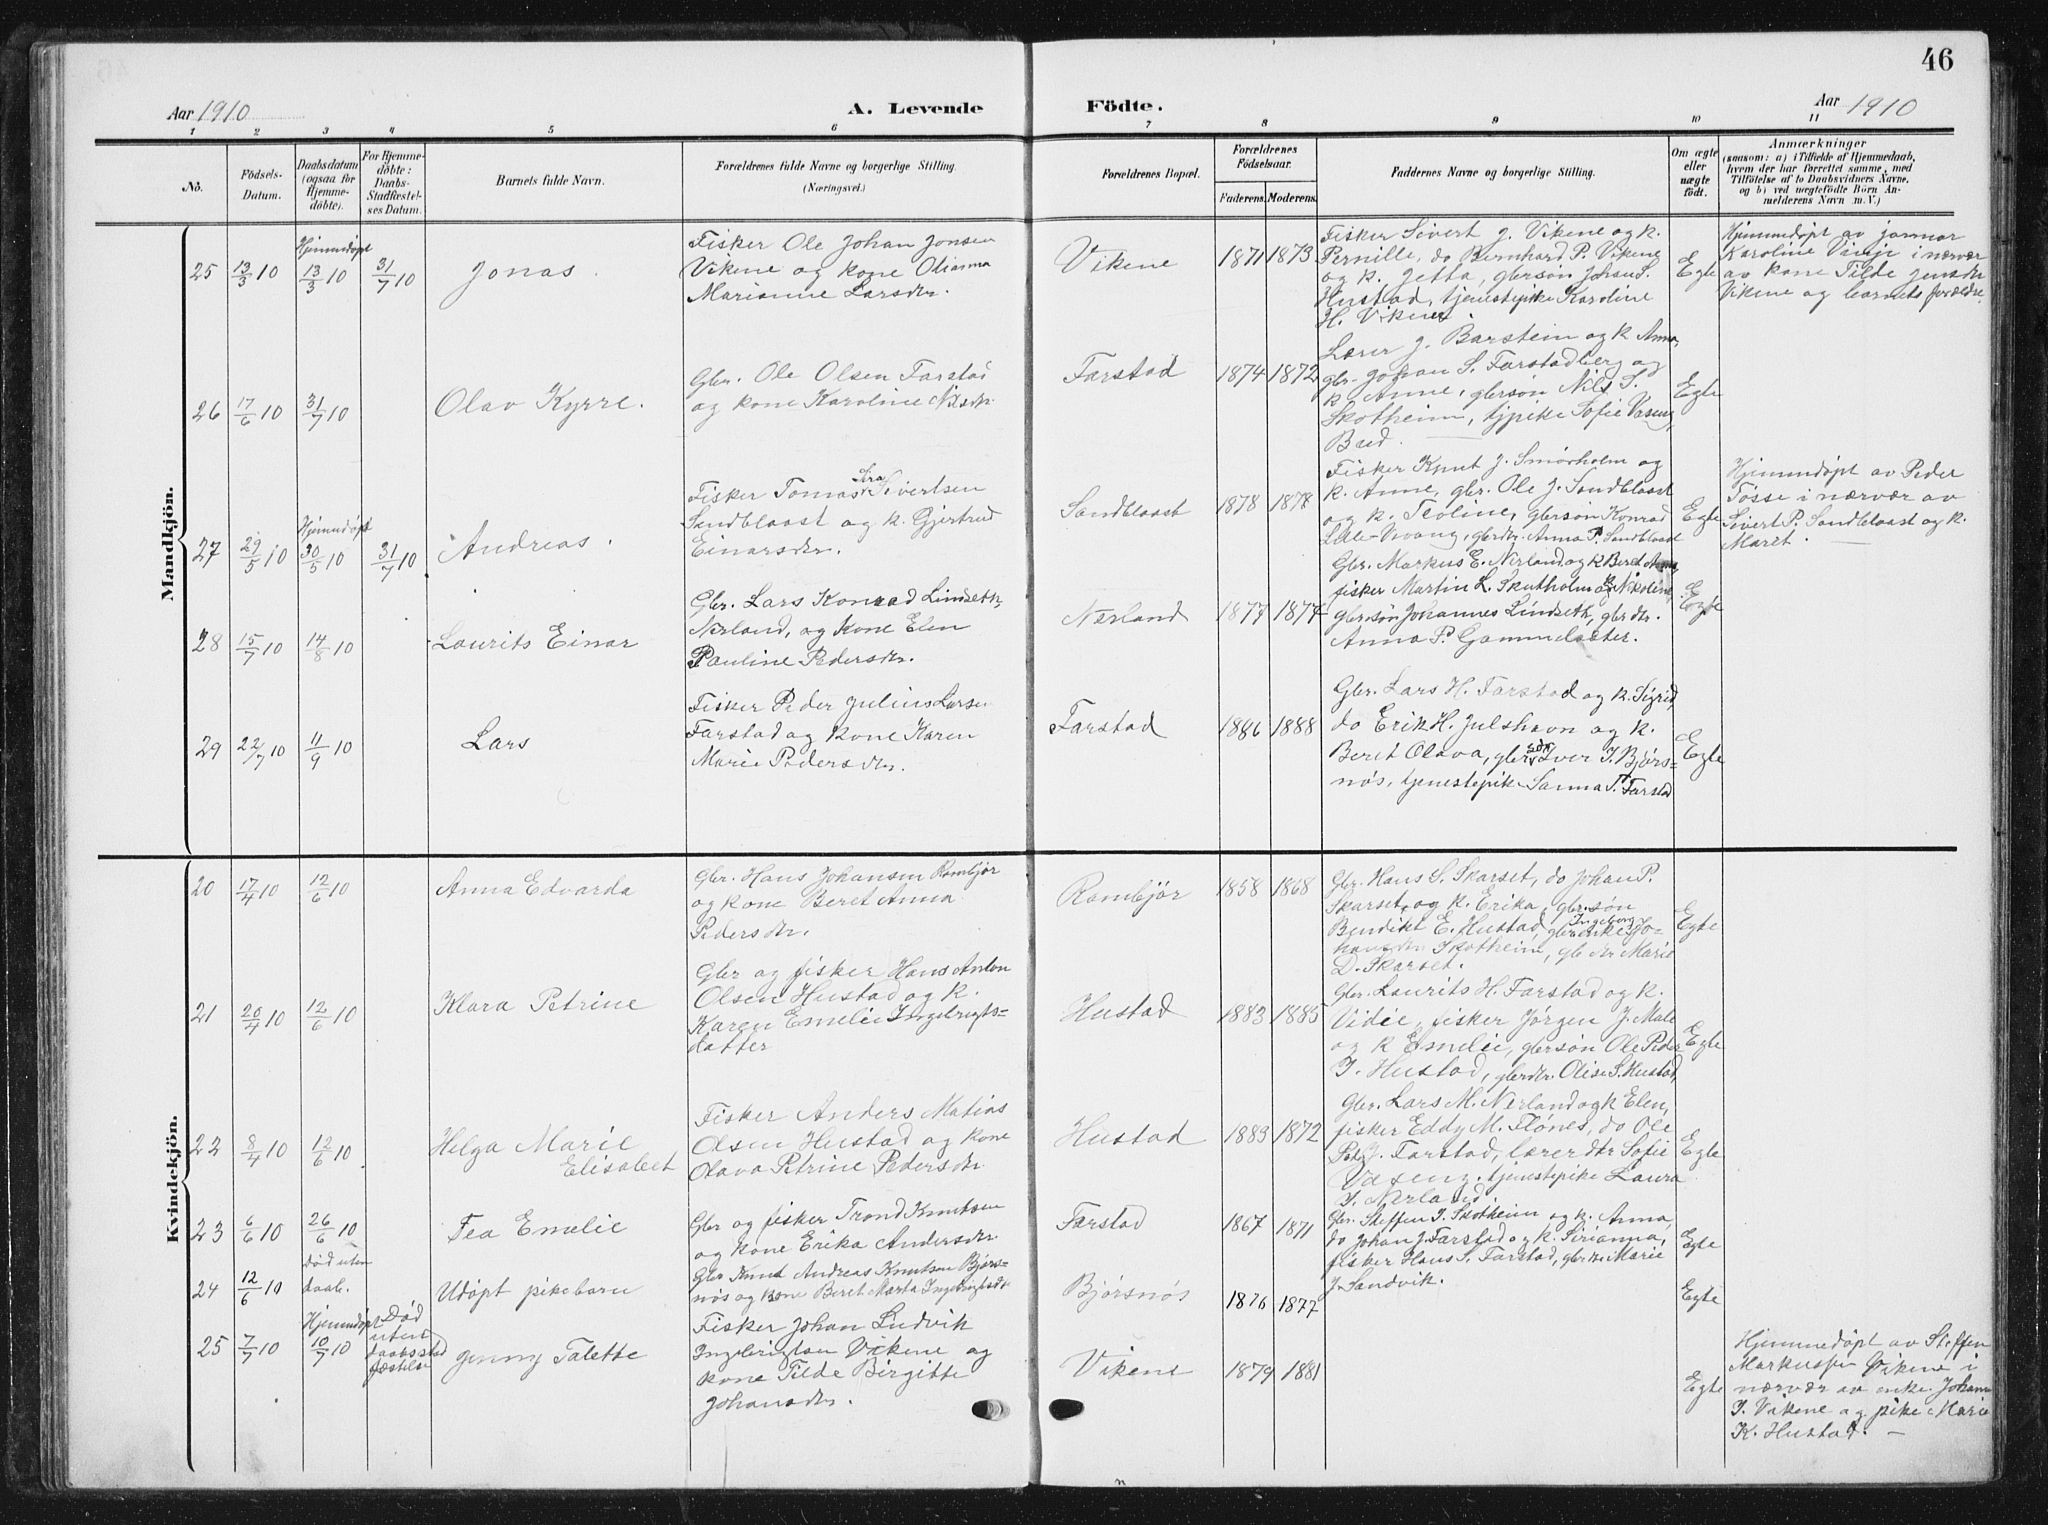 46
Aar 1910 A. Levende Födte. Aar 1910
1 2 3 4 5 6 7 8 9 10 11
No.
Födsels-
Datum.
Daabsdatum
(ogsaa for
Hjemme-
döbte).
For Hjemme-
döbte:
Daabs-
Stadfæstel-
ses Datum.
Barnets fulde Navn.
Forældrenes fulde Navne og borgerlige Stilling.
(Næringsvei.)
Forældrenes Bopæl.
Forældrenes
Födselsaar.
Faderens. Moderens.
Faddernes Navne og borgerlige Stilling.
Om ægte
eller
uægte
födt.
Anmærkninger
(saasom: a) i Tilfælde af Hjemmedaab,
hvem der har forrettet samme, med
Tilföielse af to Daabsvidners Navne,
og b) ved uægtefödte Börn An-
melderens Navn m. V.)
Mandkjön.
25 13/3 10
Hjemmedøpt
13/3 10
31/7 10
Jonas.
Fisker Ole Johan Jonsen
Vikene og kone Olianna
Marianne Larsdtr.
Vikene
1871 1873
Fisker Sivert J. Vikene og k.
Pernille, do Bernhard P. Vikene
og k. Jetta, glersøn Johan S.
Hustad, tjenestepike Karoline
H. Vikene
Egte
Hjemmedøpt av jormor
Karoline Vaagi i nærvær
av kone Tilde Jensdtr
Vikene og barnets forældre.
26 17/6 10
31/7 10
Olav Kyrre.
Gbr. Ole Olsen Farstad
og kone Karoline Nilsdtr.
Farstad
1874 1872
Lærer J. Barstein og k Anna,
gbr. Johan S. Farstadberg og
k Anne, glersøn Nils S.
Skotheim, tjpike Sofie Vaseng,
Bud.
Egte
27 29/5 10
Hjemmedøpt
30/5 10
31/7 10
Andreas.
Sira
Fisker Tomas Sivertsen
Sandblaast og k. Gjertrud
Einarsdtr.
Sandblaast
1878 1878
Fisker Knut J. Smørholm og
k. Anne, gbr. Ole J. Sandblaast
og k. Teoline, glersøn Konrad
Lille-Vvang, glerdtr. Anna P. Sandblaast
Egte
Hjemmedøpt av Peder
Tøsse i nærvær av
Sivert P. Sandblaast og k.
Maret.
28 15/7 10
14/8 10
Laurits Einar
Gbr. Lars Konrad Lindseth,
Nerland, og kone Elen
Pauline Pedersdtr.
Nerland
1877 1874
Gbr. Markus E. Nerland og k Beret Anna,
fisker Martin L. Skutholm og k Nikoline,
glersøn Johannes Lindseth, glerdtr.
Anna P. Gammelsæter.
Egte
29 22/7 10
11/9 10
Lars
Fisker Peder Julius Larsen
Farstad og kone Karen
Marie Pedersdtr.
Farstad
1886 1888
Gbr. Lars H. Farstad og k. Sigrid,
do Erik H. Julshavn og k.
Beret Olava, glersøn Iver I. Bjørs-
nøs, tjenestepike Sanna T. Farstad
Egte
Kvindekjön.
20 17/4 10
12/6 10
Anna Edvarda
Gbr. Hans Johansen Rambjør
og kone Beret Anna
Pedersdtr.
Rambjør
1858 1868
Gbr. Hans S. Skarset, do Johan P.
Skarset og k. Erika, gbr. søn
Bendikt E. Hustad, gbrenke Ingeborg Jo-
hansdtr Skotheim, gb dtr Marie
D. Skarset.
Egte
21 20/4 10
12/6 10
Klara Petrine
Gbr og fisker Hans Anton
Olsen Hustad og k.
Karen Emelie Ingebrigts-
datter
Hustad
1883 1885
Gbr. Laurits H. Farstad og k.
Vidie, fisker Jørgen J. Male
og k Emelie, glersøn Ole Peder
I. Hustad, glerdtr. Olise S. Hustad,
Egte
22 8/4 10
12/6 10
Helga Marie
Elisabet
Fisker Anders Matias
Olsen Hustad og kone
Olava Petrine Pedersdtr
Hustad
1883 1872
Gbr. Lars M. Nerland og k Elen,
fisker Eddy M. Flønes, do Ole
Peder J. Farstad, lærer dtr Sofie
Vaseng, tjenestepike Laura
I. Nerland.
Egte
23 6/6 10
26/6 10
Fea Emelie
Gbr og fisker Trond Knutsen
og kone Erika Andersdtr
Farstad
1867 1871
Gbr. Steffen I. Skotheim og k. Anna,
do Johan J. Farstad og k. Sirianna,
fisker Hans S. Farstad, gbr. dtr Marie
J. Sandvik.
Egte
24 12/6 10
Død uten
daab.
Udøpt pikebarn
Gbr Knut Andreas Knutsen Bjørs-
nøs og kone Beret Marta Ingebrigtsdtr
Bjørsnøs
1876 1877
Egte
25 7/7 10
Hjemmedøpt
10/7 10
Død
uten
daabsstad
fæstelse
Jenny Talette
Fisker Johan Ludvik
Ingebrigtsen Vikene og
kone Tilde Birgitte
Johansdtr.
Vikene
1879 1881
Egte
Hjemmedøpt av Steffen
Markussen Vikene i
nærvær av enke Johanna
I. Vikene og pike Marie
K. Hustad.